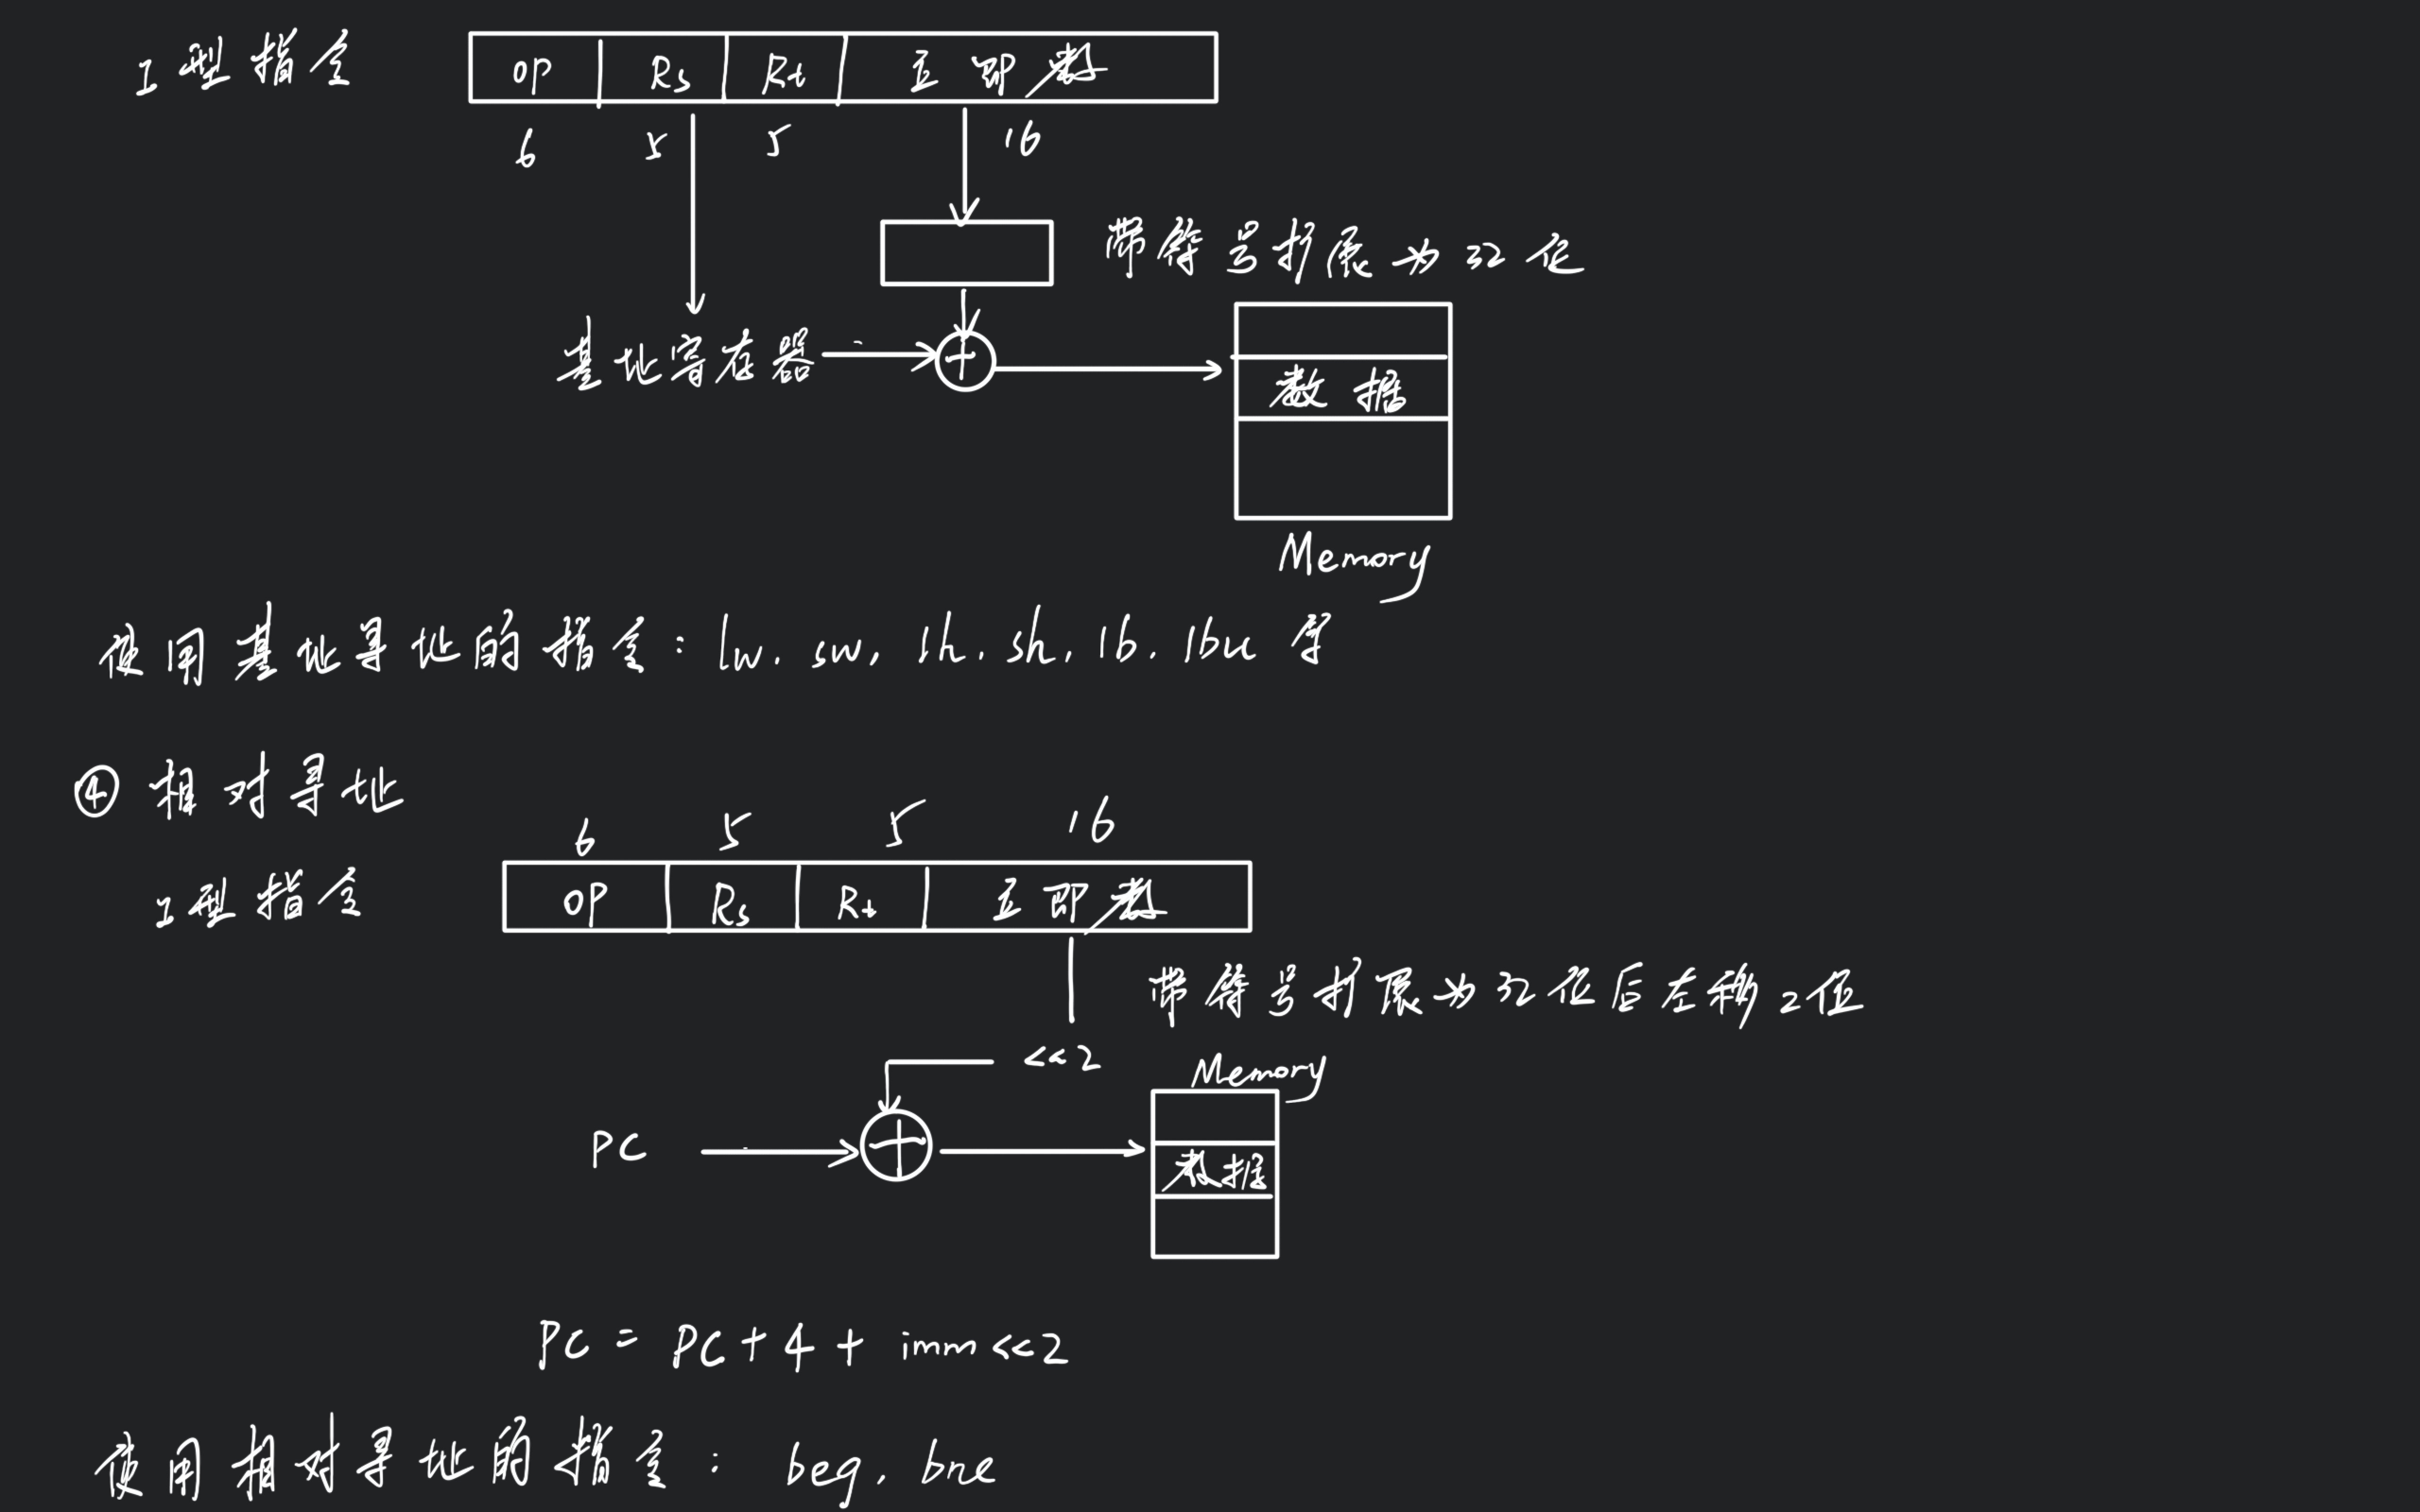 I型指令 OP Rs Rt 立即数
6 5 5 16
带符号扩展为32位
基址寄存器 +
数据
Memory
使用基址寻址的指令: lw. sw, lh. sh, lb. lbu 等
④ 相对寻址
6 5 5 16
I型指令 OP Rs Rt 立即数
带符号扩展为32位后左移2位
<<2
Memory
PC +
数据
PC = PC + 4 + imm<<2
使用相对寻址的指令: beq, bne